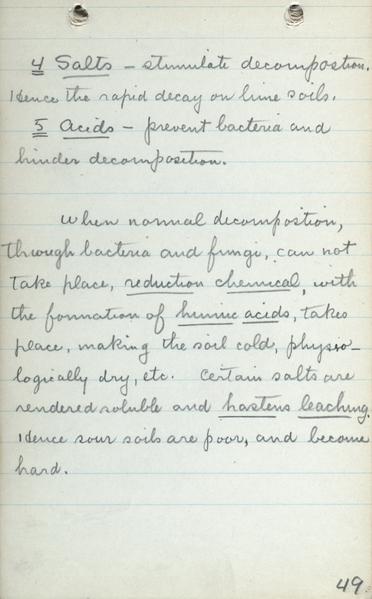 4 Salts – stimulate decomposition.
Hence the rapid decay on lime soils.
5 Acids – prevent bacteria and
hinder decomposition.
When normal decompostion,
through bacteria and fungi, can not
take place, reduction chemical, with
the formation of humic acids, takes
place, making the soil cold, physio-
logically dry, etc. Certain salts are
rendered soluble and hastens leaching.
Hence sour soils are poor, and become
hard.
49